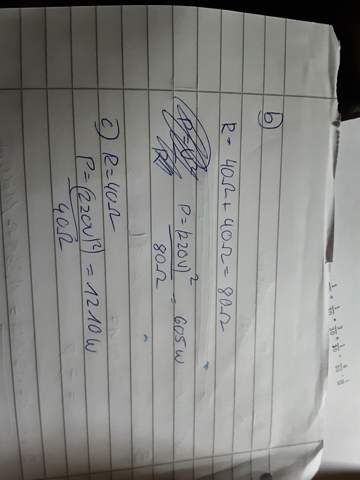 b)
R = 40Ω + 40Ω = 80Ω
P = (220V)² / 80Ω = 605W
c) R = 40Ω
P = (220V)² / 40Ω = 1210W